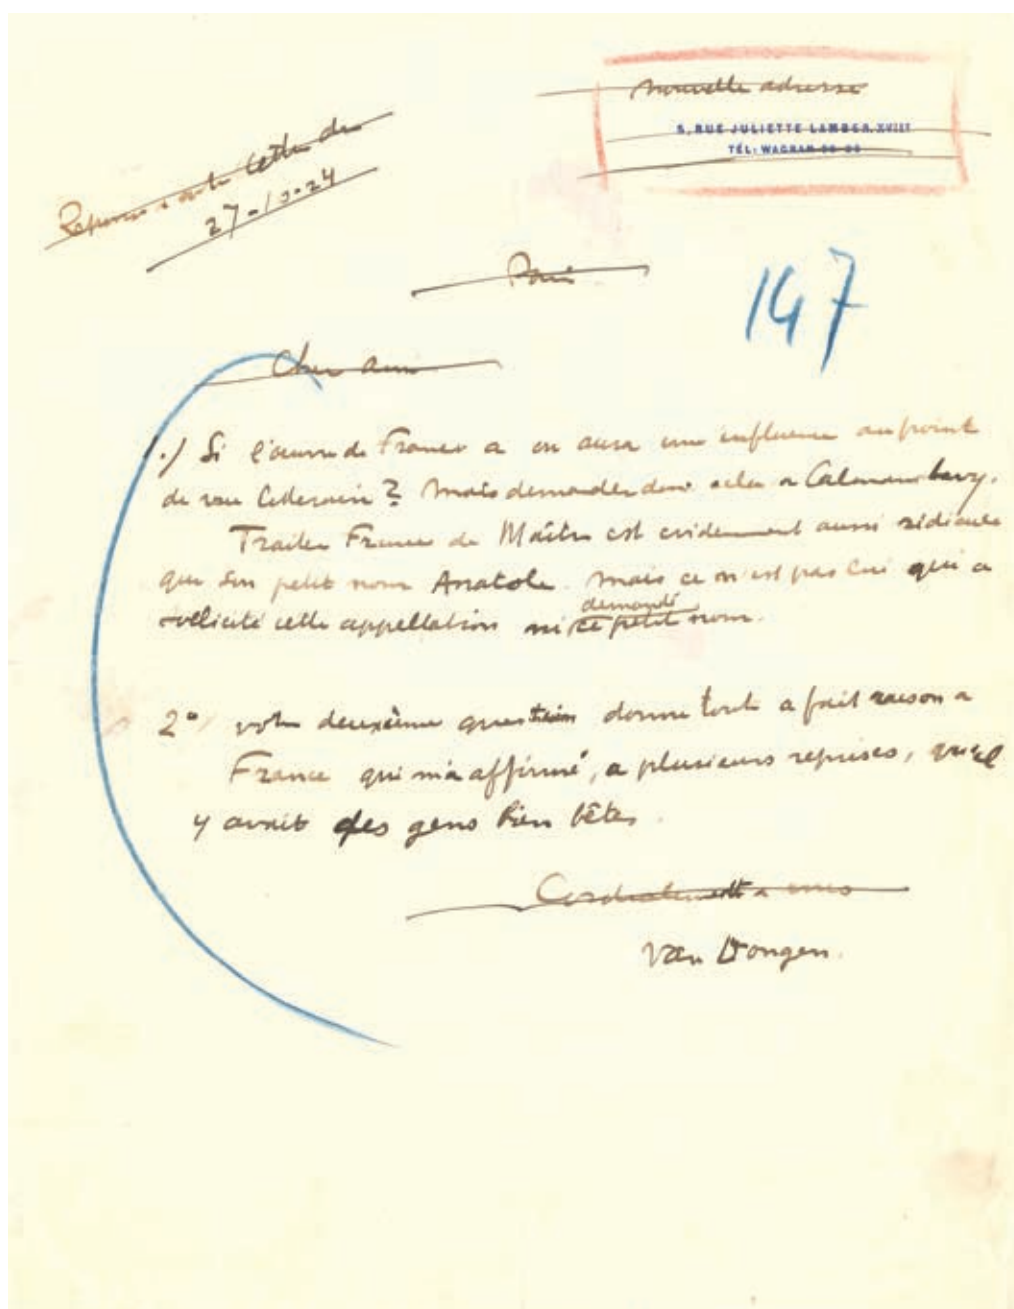 nouvelle adresse
5, RUE JULIETTE LAMBER. XVIIe
TÉL: WAGRAM
Reponse a votre lettre du
27-10-24
Paris
147
Cher ami
1.) Si l'œuvre de France a ou aura une influence au point
de vue litteraire? Mais demander donc cela a Calmann Levy.
Traiter France de Maître est evidemment aussi ridicule
que son petit nom Anatole. Mais ce n'est pas lui qui a
sollicité cette appellation ni
demandé
ce petit nom.
2° votre deuxième question donne tout a fait raison a
France qui m'a affirmé, a plusieurs reprises, qu'il
y avait des gens bien bêtes.
Cordialement a vous
Van Dongen.